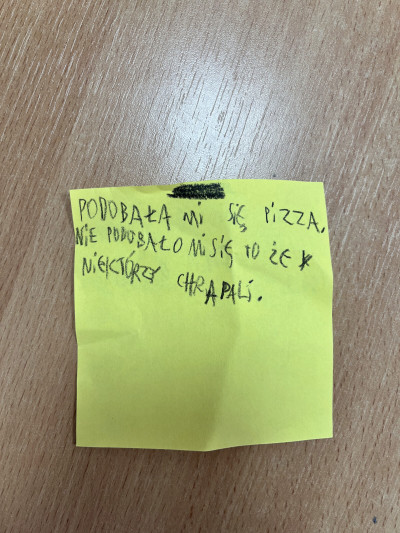 PODOBAŁA MI SIĘ PIZZA.
NIE PODOBAŁO MI SIĘ TO ŻE
NIEKTÓRZY CHRAPALI.